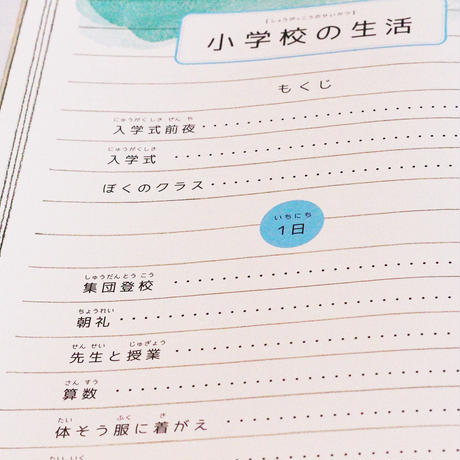 [しょうがっこうのせいかつ]
小学校の生活
もくじ
にゅうがくしき ぜん や
入学式前夜
にゅうがくしき
入学式
ぼくのクラス
いちにち
1日
しゅうだんとう こう
集団登校
ちょうれい
朝礼
せん せい じゅぎょう
先生と授業
さん すう
算数
たい ふく き
体そう服に着がえ
たい いく